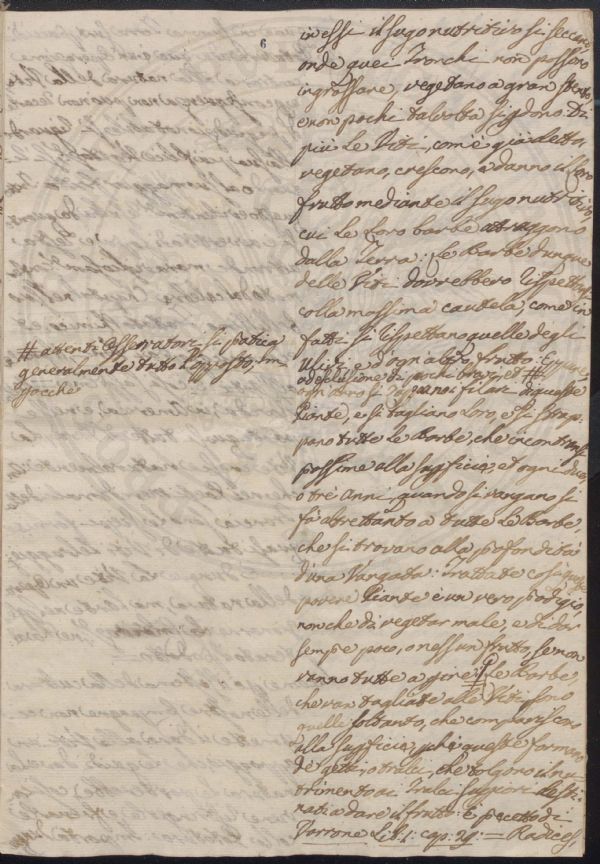 6
in essi il sugo nutritivo si secca,
onde quei Tronchi non possono
ingrossare, vegetano a gran stento,
e non pochi talvolta si
più Le Viti, com'è già detto,
vegetano, crescono, e danno il loro
frutto mediante il sugo nutritivo,
cui Le Loro barbe attraggono
dalla Terra: Le Barbe dunque
delle Viti dovrebbero rispettarsi
colla massima cautela, come in
fatti si rispettano quelle degli
Ulivi, e d'ogn'altro frutto: Eppure,
ad esclusione di pochi bravi, et #
# attenti Osservatori, si pratica
generalmente tutto l'opposto, im-
perocchè
ogn'anno si i filari di queste
Piante, e si tagliano Loro, e si strap-
pano tutte Le Barbe, che incontransi
prossime alla superficie, et ogni due,
o tre anni, quando si vangano si
fa altrettanto a tutte Le Barbe,
che si trovano alla profondità
d'una Vangata: Trattate così queste
povere Piante è un vero prodigio,
non che di vegetar male, e di dar
sempre poco, o nessun frutto, se non
vanno tutte a perire. Le Barbe,
che van tagliate alle Viti sono
quelle soltanto, che compariscono
alla superficie, perchè queste formano
de' getti, o tralci, che tolgono il nu-
trimento ai Tralci superiori desti-
nati a dare il frutto: è precetto di
Varrone Lib. I. cap. 29: = Radices,